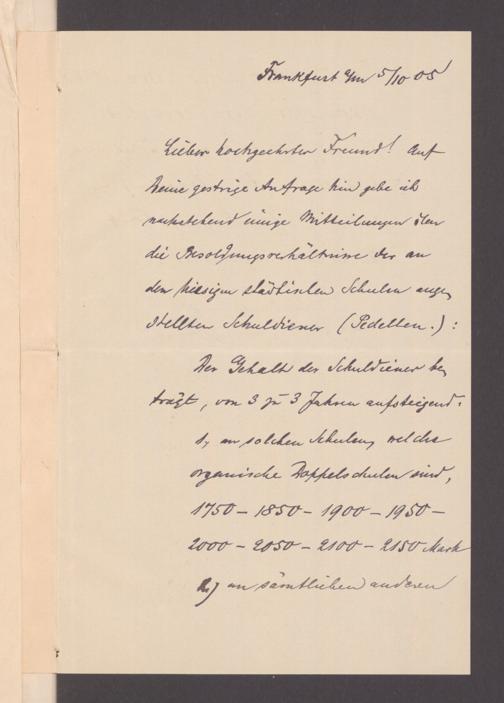 Frankfurt a/m 5/10 05
Lieber hochgeehrter Freund! Auf
Deine gestrige Anfrage hin gebe ich
nachstehend einige Mitteilungen über
die Besoldungsverhältnisse der an
den hiesigen städtischen Schulen ange,
stellten Schuldiener (Pedellen.) :
Der Gehalt der Schuldiener be,
trägt, von 3 zu 3 Jahren aufsteigend:
1, an solchen Schulen, welche
organische Doppelschulen sind,
1750 – 1850 – 1900 – 1950 –
2000 – 2050 – 2100 – 2150 Mark
2,) an sämtlichen anderen